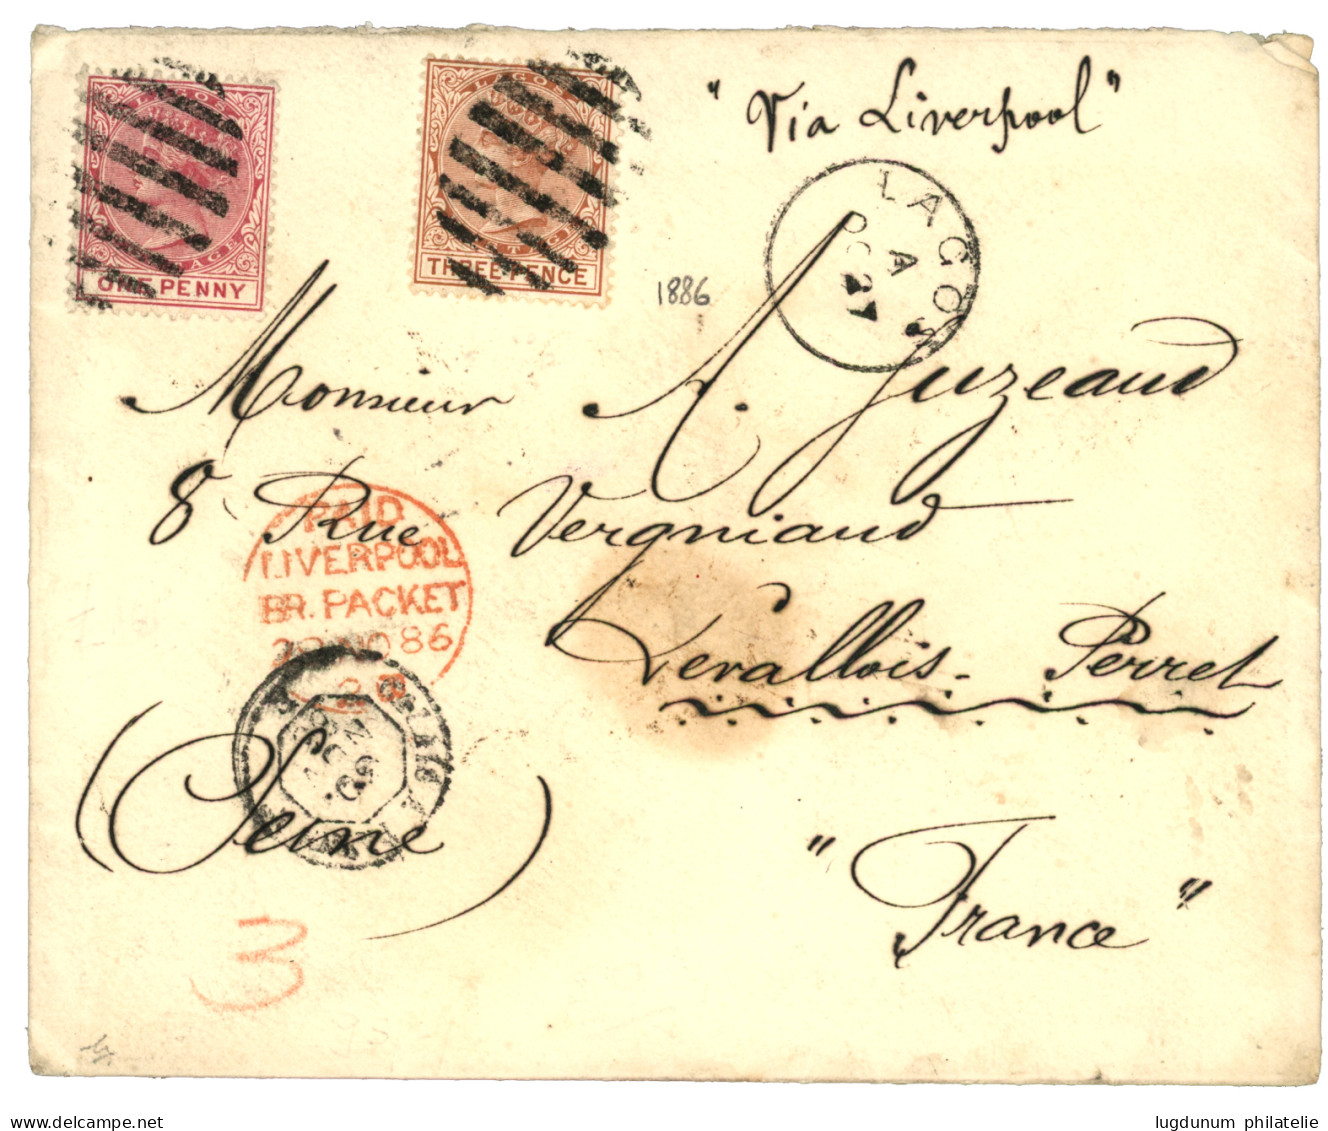 LAGOS
ONE PENNY
LAGOS
THREE PENCE
"Via Liverpool"
LAGOS
A
OC 27
1886
Monsieur A. Juzeaud
8 Rue Vergniaud
PAID
LIVERPOOL
BR. PACKET
86
Levallois-Perret
(Seine)
"France"
3
www.delcampe.net
lugdunum philatelie